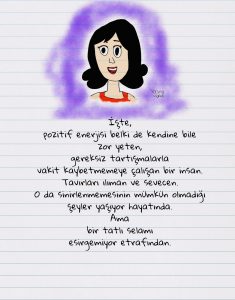 İşte,
pozitif enerjisi belki de kendine bile
zor yeten,
gereksiz tartışmalarla
vakit kaybetmemeye çalışan bir insan.
Tavırları ılıman ve sevecen.
O da sinirlenmemesinin mümkün olmadığı
şeyler yaşıyor hayatında.
Ama
bir tatlı selamı
esirgemiyor etrafından.